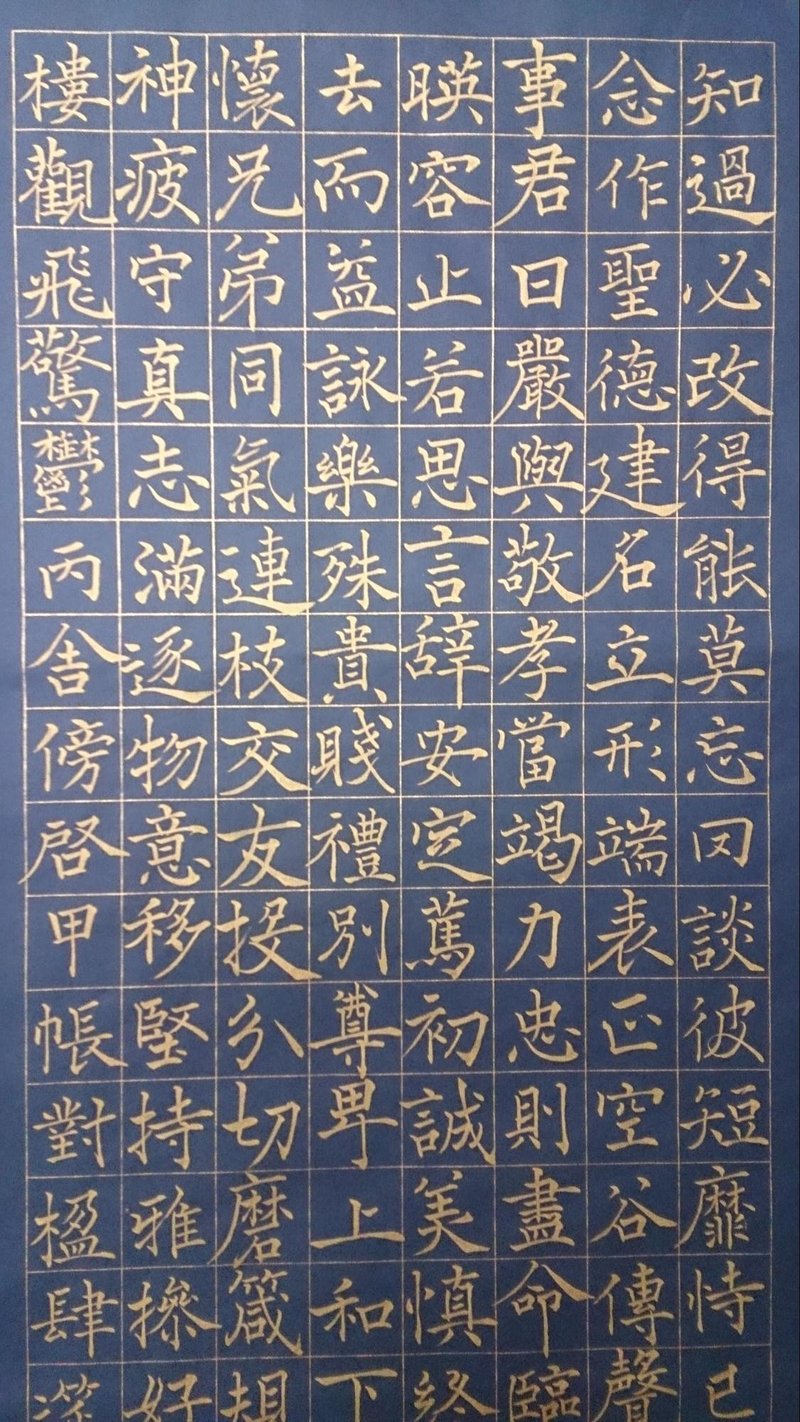 知過必改得能莫忘罔談彼短靡恃己
念作聖德建名立形端表正空谷傳聲
事君曰嚴與敬孝當竭力忠則盡命臨
暎容止若思言辭安定篤初誠美慎終
去而益詠樂殊貴賤禮別尊卑上和下
懷兄弟同氣連枝交友投分切磨箴規
神疲守真志滿逐物意移堅持雅操好
樓觀飛驚鬱丙舍傍啓甲帳對楹肆